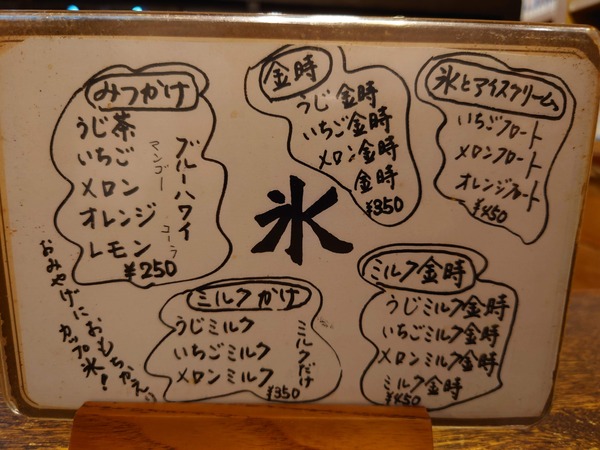 みつかけ
うじ茶
いちご
メロン
オレンジ
レモン
ブルーハワイ
マンゴー
コーラ
¥250
金時
うじ金時
いちご金時
メロン金時
金時
¥350
氷とアイスクリーム
いちごフロート
メロンフロート
オレンジフロート
¥450
氷
ミルクかけ
うじミルク
いちごミルク
メロンミルク
ミルクだけ
¥350
ミルク金時
うじミルク金時
いちごミルク金時
メロンミルク金時
ミルク金時
¥450
おみやげにおもちかえり
カップ氷!